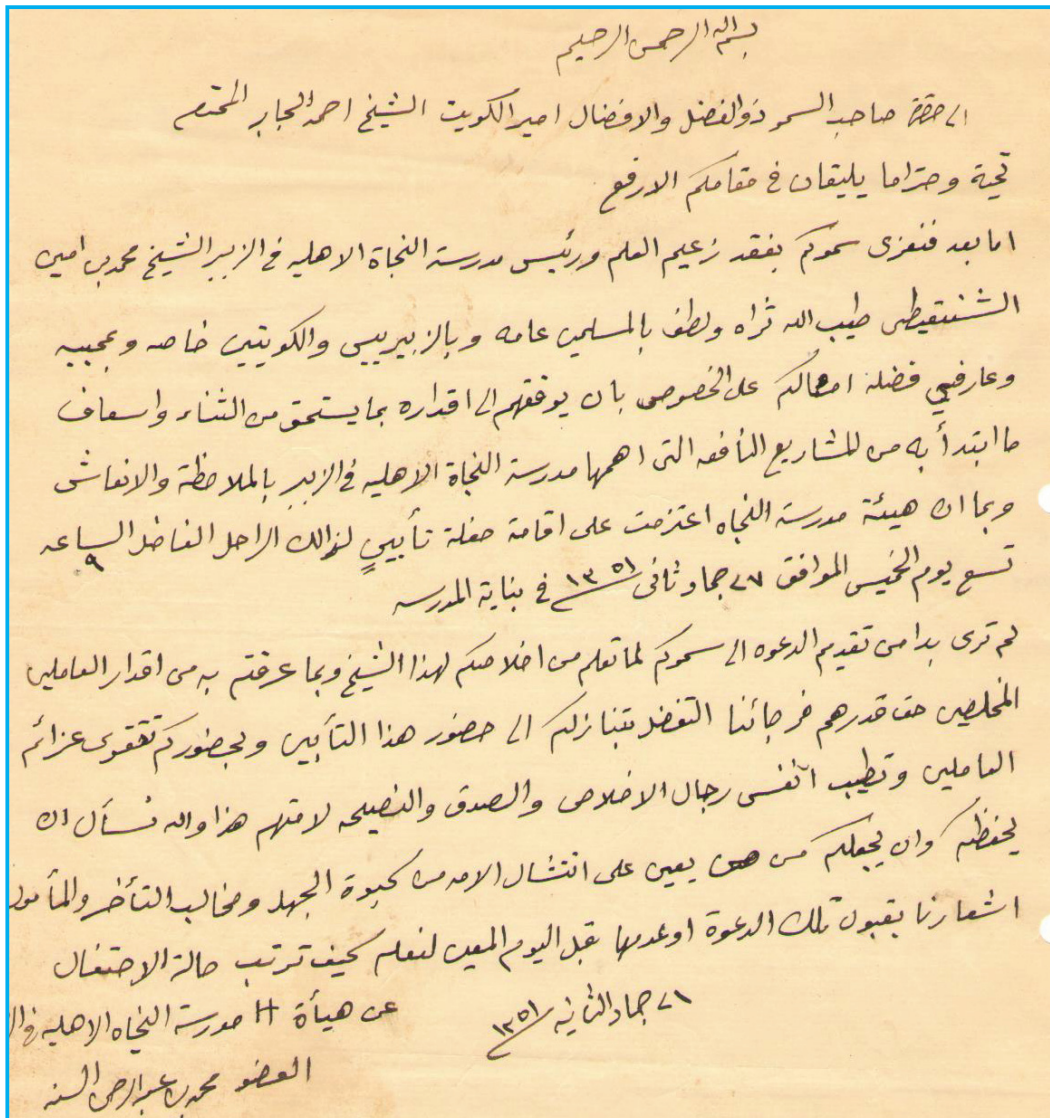 بسم الله الرحمن الرحيم
الى حضرة صاحب السمو ذو الفضل والافضال امير الكويت الشيخ احمد الجابر المحترم
تحية وحتراما يليقان في مقامكم الارفع
اما بعد فنعزى سموكم بفقد زعيم العلم ورئيس مدرسة النجاة الاهليه في الزبير الشيخ محمد بن امين
الشنقيطى طيب الله ثراه ولطف بالمسلمين عامه وبالزبيريين والكويتيين خاصه وبمحبيه
وعارفي فضله امثالكم على الخصوص بان يوفقهم الى اقداره بما يستحق من الثناء واسعاف
ما ابتدأ به من المشاريع النافعه التى اهمها مدرسة النجاة الاهليه في الزبير بالملاحظة والانعاش
وبما ان هيئة مدرسة النجاه اعتزمت على اقامة حفلة تأبينٍ لذالك الراحل الفاضل الساعه ٩
تسع يوم الخميس الموافق ٢٧ جماد ثانى ١٣٥١ في بناية المدرسه
لم ترى بدا من تقديم الدعوه الى سموكم لما تعلم من اخلاصكم لهذا الشيخ وبما عرفتم به من اقدار العاملين
المخلصين حق قدرهم فرجائنا التفضل بتنازلكم الى حضور هذا التأبين وبحضوركم تتقوى عزائم
العاملين وتطيب انفس رجال الاخلاص والصدق والنصيحه لامتهم هذا والله نسأل ان
يحفظكم وان يجعلكم من يعين على انتشال الامه من كبوة الجهل ومخالب التأخر والمأمول
اشعارنا بقبول تلك الدعوة او عدمها قبل اليوم المعين لنعلم كيف ترتب حالة الاحتفال
٢١ جماد الثانيه ١٣٥١
عن هيأة مدرسة النجاه الاهليه في
العضو محمد بن عبد الرحمن السند